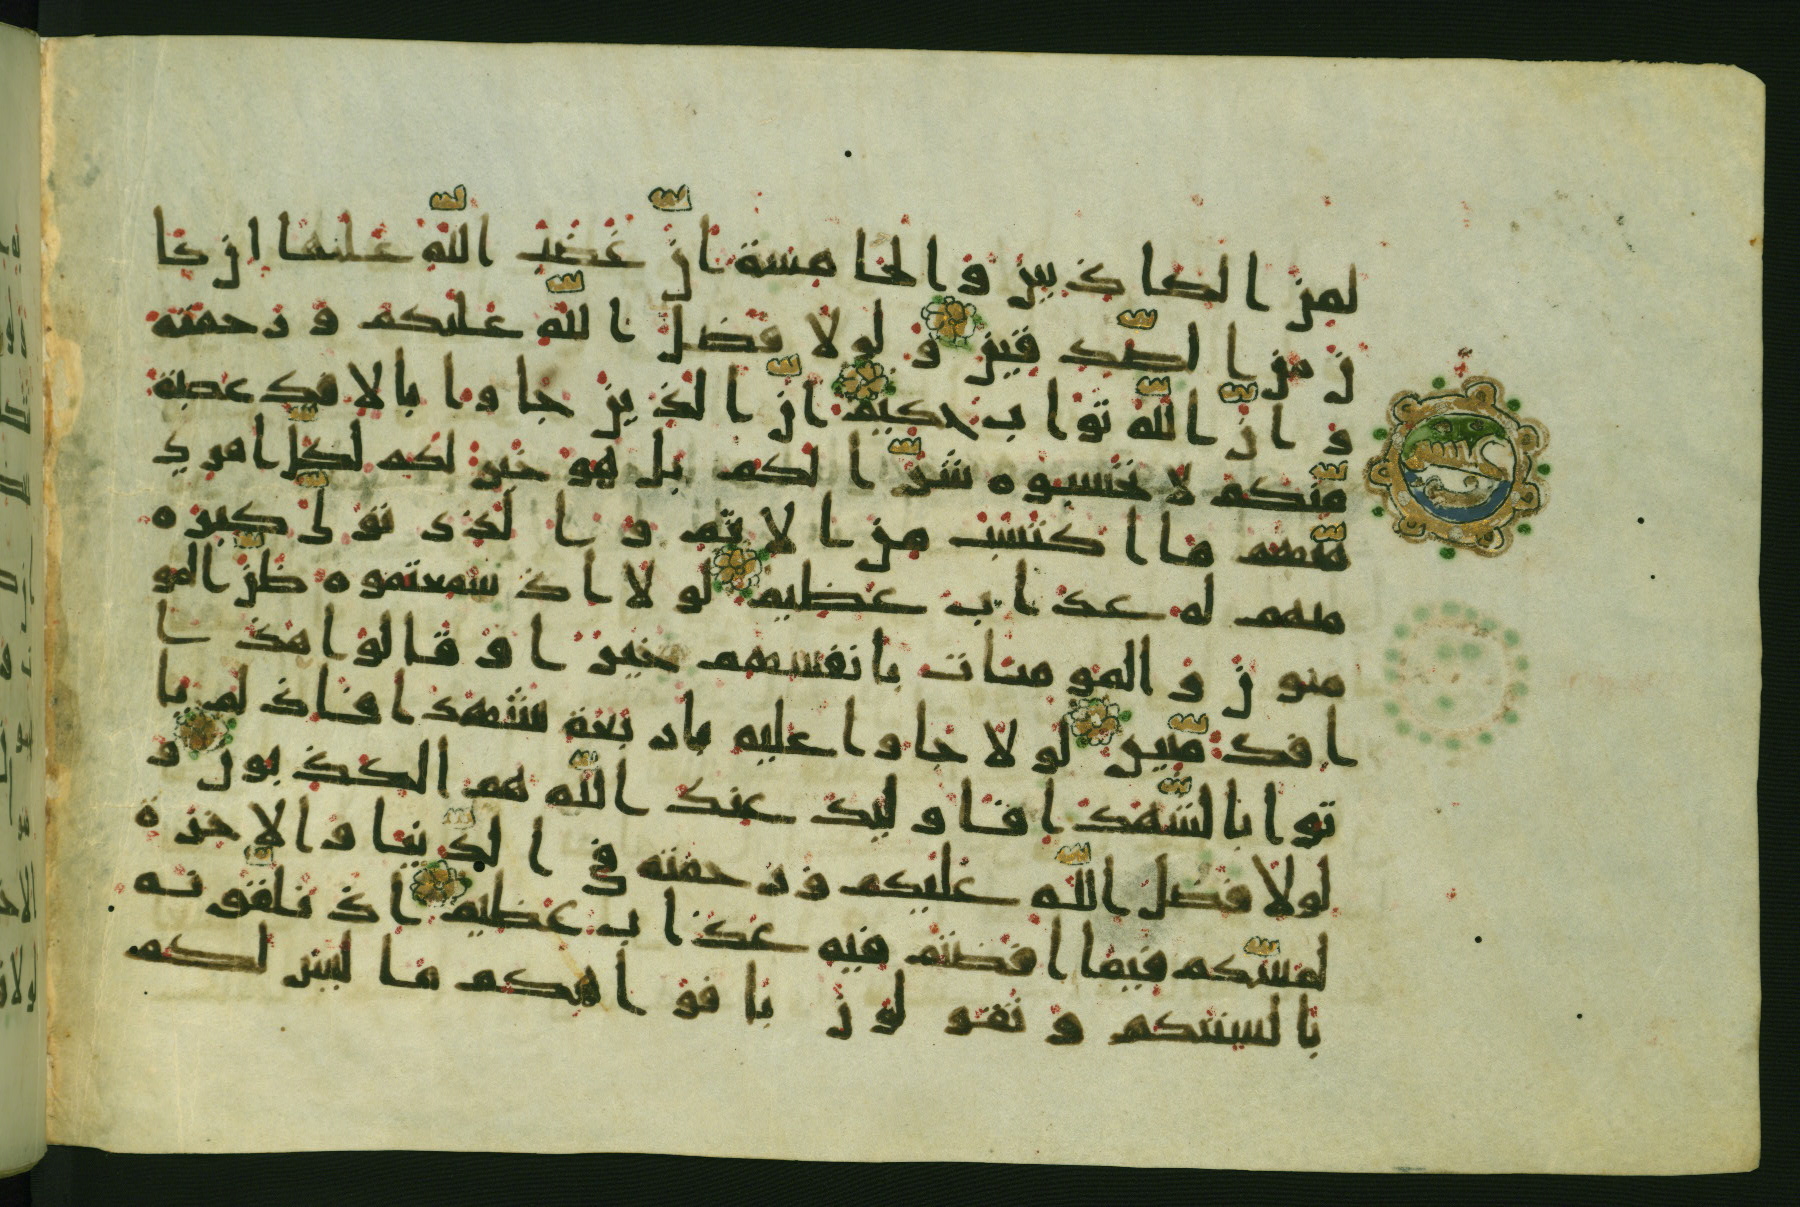 لمن الكاذبين والخامسة انّ غضب اللّه عليها ان كا
ن من الصّدقين ولولا فضل اللّه عليكم ورحمته
و انّ اللّه تواب حكيم انّ الذين جاوا بالافك عصبة
مّنكم لا تحسبوه شرّا لكم بل هو خير لكم لكلّ امري
مّنهم ما اكتسب من الاثم و الذي تولّى كبره
منهم له عذاب عظيم لولا اذ سمعتموه ظنّ المو
منون و المومنات بانفسهم خيرا و قالوا هذا
افك مّبين لولا جاوا عليه باربعة شهدا فاذ لم يا
توا بالشّهدا فاوليك عند اللّه هم الكذبون و
لولا فضل اللّه عليكم ورحمته في الدّنيا والاخرة
لمسّكم فيما افضتم فيه عذاب عظيم اذ تلقّونه
بالسنتكم و تقولون بافواهكم ما ليس لكم